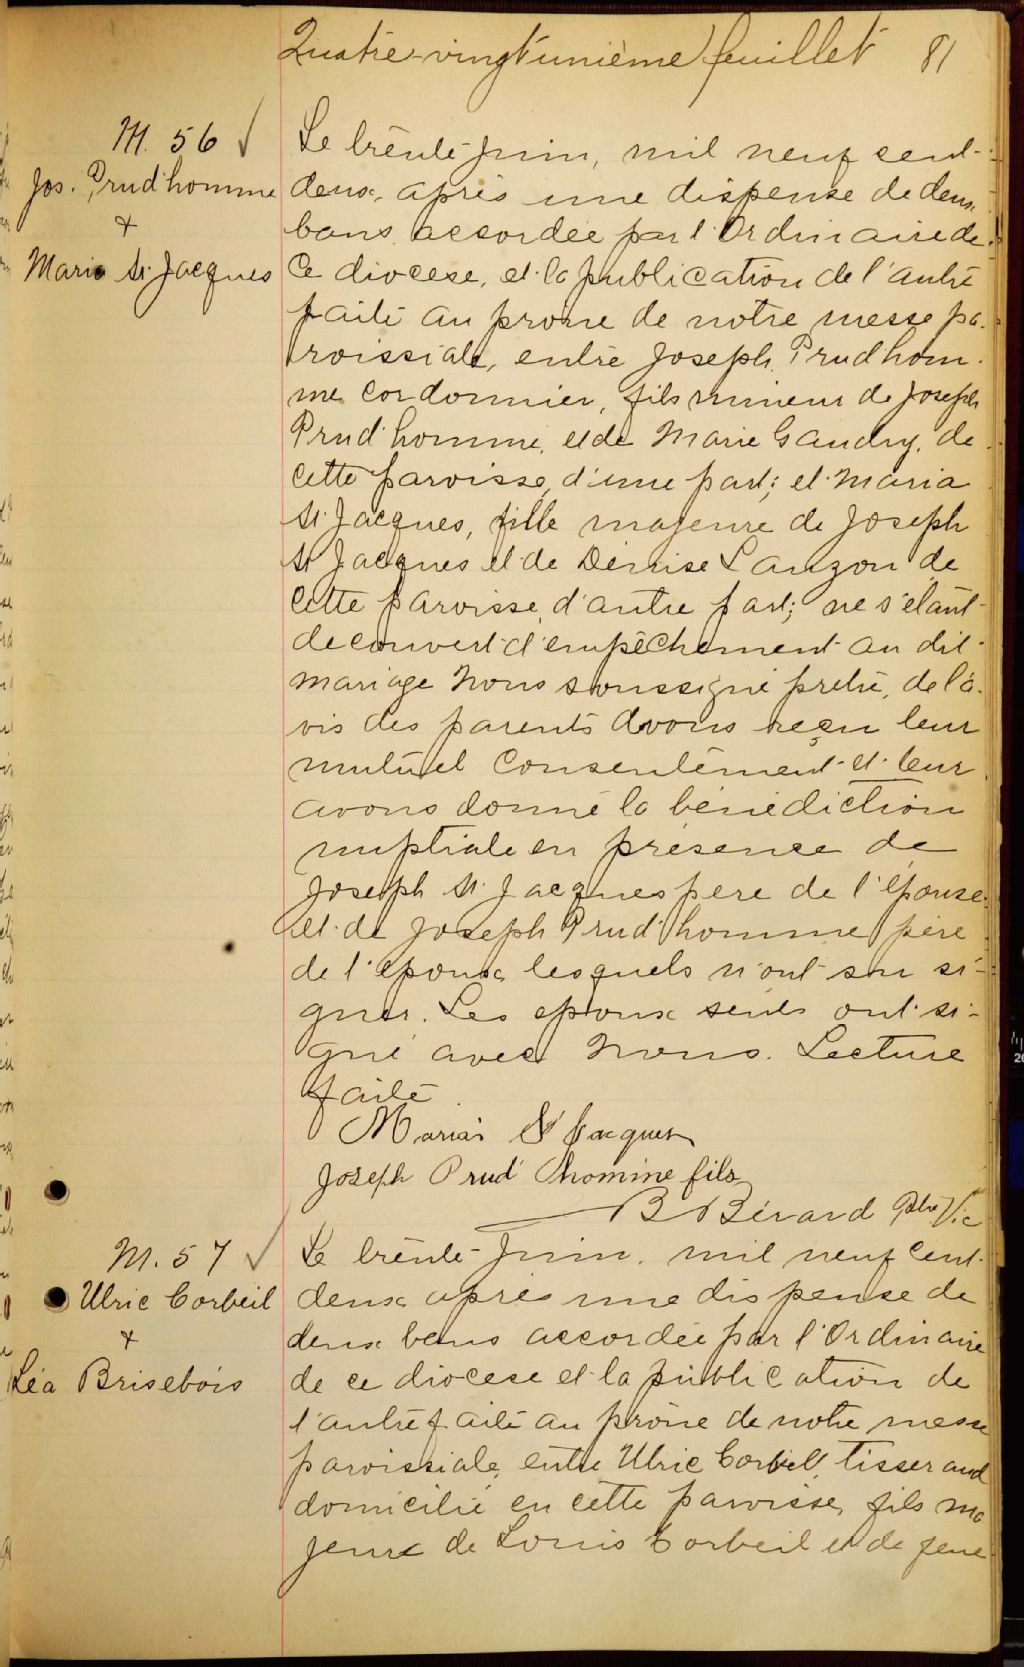 Quatre-vingt unième feuillet 81
M. 56 ✓
Jos. Prud'homme
+
Maria St Jacques
Le trente juin, mil neuf cent-
deux, après une dispense de deux
bans accordée par l'Ordinaire de
Ce diocèse, et la publication de l'autre
faite au prone de notre messe pa-
roissiale, entre Joseph Prud'hom-
me cordonnier, fils mineur de Joseph
Prud'homme, et de Marie Gaudry, de
cette paroisse, d'une part; et Maria
St Jacques, fille majeure de Joseph
St Jacques et de Denise Lauzon de
cette paroisse, d'autre part; ne s'étant
découvert d'empêchement au dit
mariage Nous soussigné prêtre, de l'a-
vis des parents avons reçu leur
mutuel consentement et leur
avons donné la bénédiction
nuptiale en présence de
Joseph St Jacques père de l'épouse
et de Joseph Prud'homme père
de l'époux lesquels n'ont su si-
gner. Les époux seuls ont si-
gné avec Nous. Lecture
faite.
Maria St Jacques
Joseph Prud'homme fils
B Bérard Ptre Vic
M. 57 ✓
Ulric Corbeil
+
Léa Brisebois
Le trente juin, mil neuf cent-
deux après une dispense de
deux bans accordée par l'Ordinaire
de ce diocèse et la publication de
l'autre faite au prône de notre messe
paroissiale, entre Ulric Corbeil, tisserand
domicilié en cette paroisse, fils ma
jeur de Louis Corbeil et de feue